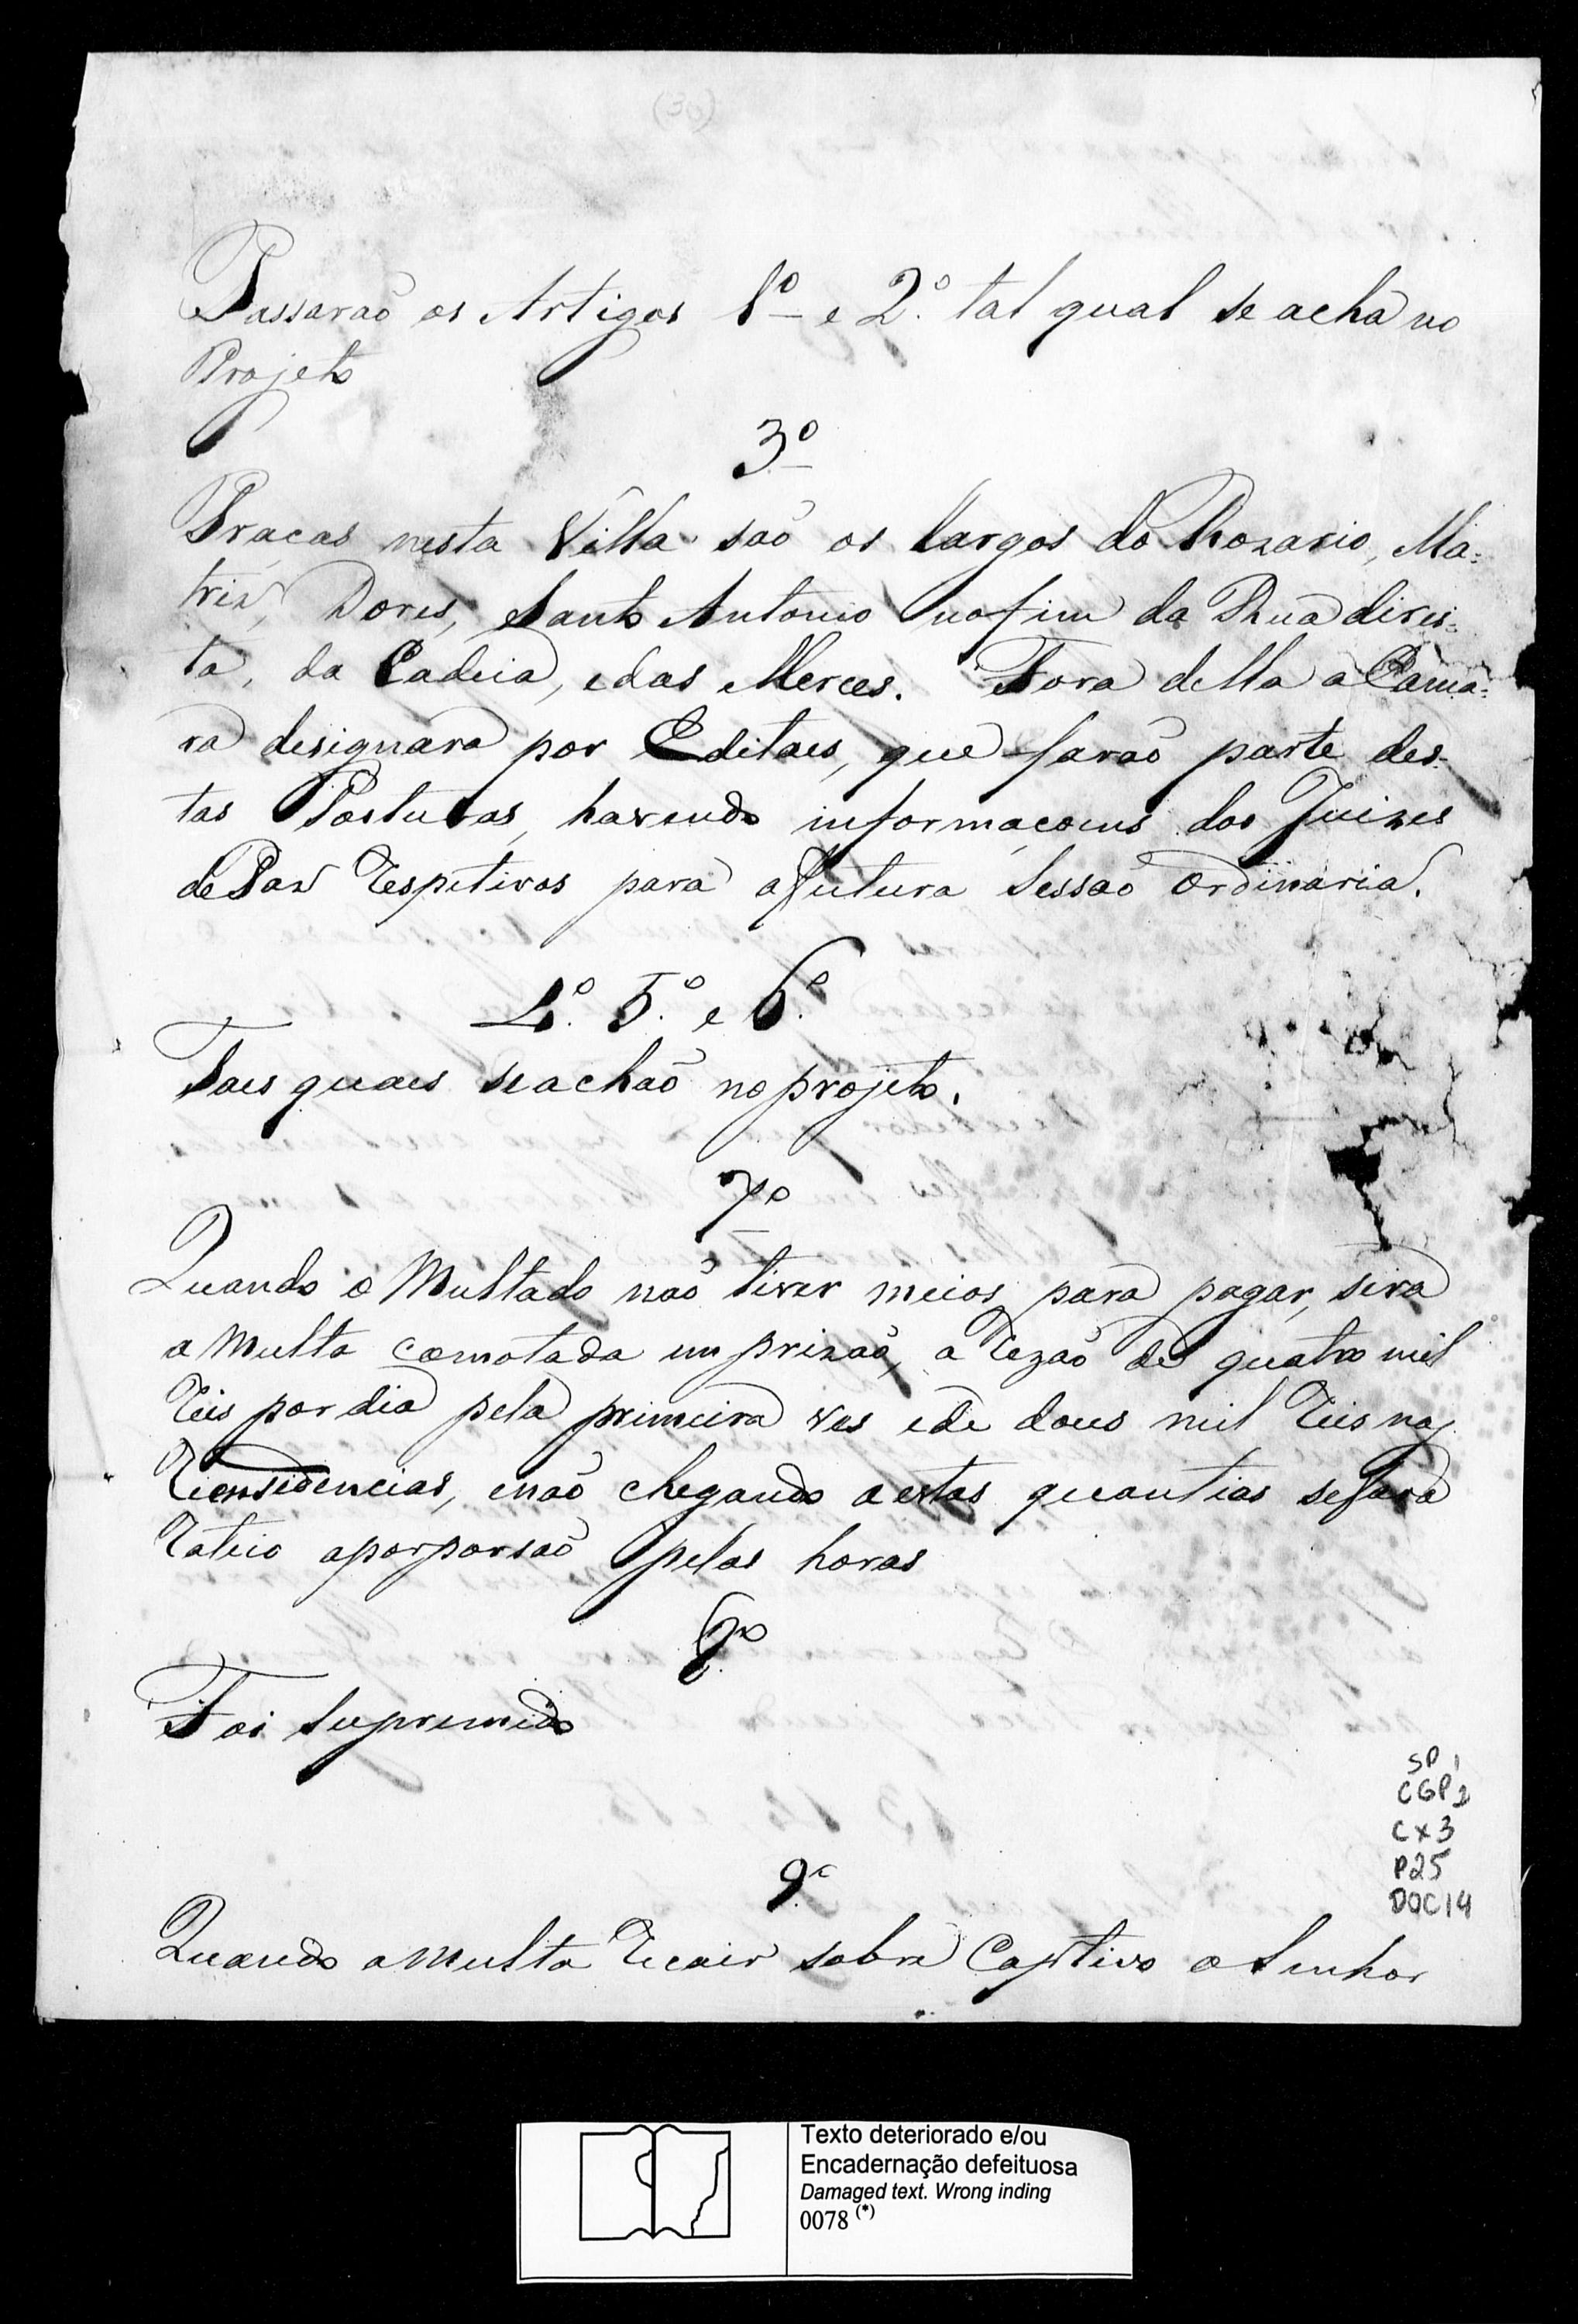 (30)
Passaraõ os Artigos 1º e 2º. tal qual se acha no
Projeto
3º
Pracas nesta Villa saõ os Largos do Rozario, Ma=
triz, Dores, Santo Antonio no fim da Rua direi=
ta, da Cadeia, e das Merces. Fora della a Cama=
ra designara por Editaes, que faraõ parte des=
tas Posturas, havendo informaçoens dos Juizes
de Paz respetivos para a futura Sessaõ Ordinaria.
4º. 5º. e 6º.
Taes quaes se achaõ no projeto.
7º
Quando o Multado naõ tiver meios para pagar, sera
a Multa comotada em prizaõ, a rezaõ de quatro mil
reis por dia pela primeira ves e de dous mil reis nas
reensidencias, e naõ chegando a estas quantias se fara
rateio a porporsaõ pelas horas
8º
Foi Supremido
9º
Quando a Multa recair sobre Captivo o Senhor
SP 1
CGP 2
CX3
P25
DOC14
Texto deteriorado e/ou
Encadernação defeituosa
Damaged text. Wrong inding
0078 (*)